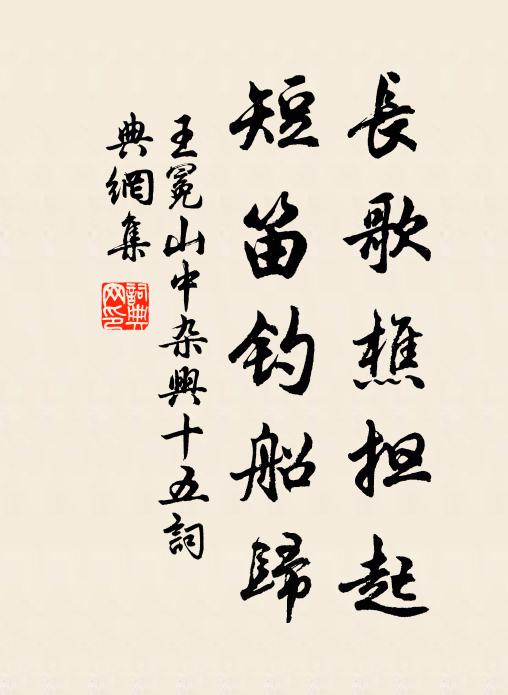 長歌樵担起
短笛钓船歸
王冕山中杂興十五詞
典網集
詞典
网印